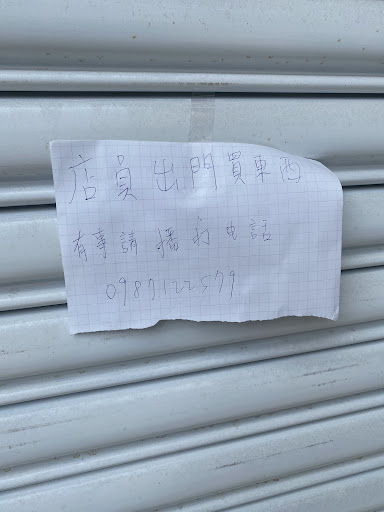 店員出門買東西
有事請播打电話
0987122579